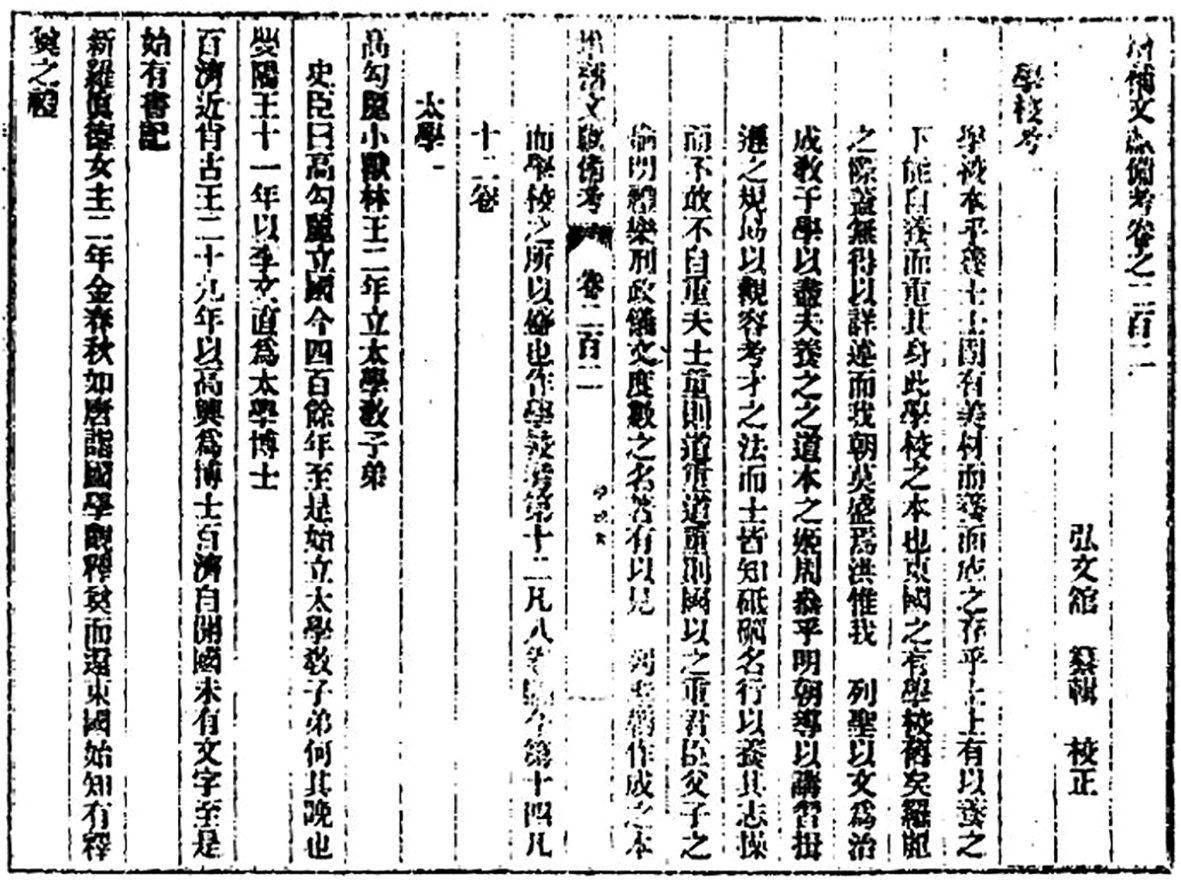 增補文獻備考卷之二百二
弘文舘 纂輯 校正
學校考一
學校本乎養士士固有美材而養而成之存乎上上有以養之
下能自養而重其身此學校之本也東國之有學校舊矣羅麗
之際蓋無得以詳述而我朝莫盛焉洪惟我 列聖以文爲治
成敎于學以盡夫養之之道本之姬周參乎明朝導以講習揖
遜之規 以觀容考才之法而士皆知砥礪名行以養其志操
而不敢不自重夫士重則道重道重則國以之重君臣父子之
倫明禮樂刑政儀文度數之名 有以見 列 作成之本
增補文獻備考 卷二百二
而學校之所以盛也作學校考第十二凡八 第十四凡
十二卷
太學一
高勾麗小獸林王二年立太學敎子弟
史臣曰高勾麗立國今四百餘年至是始立太學敎子弟何其晚也
嬰陽王十一年以李文眞爲太學博士
百濟近肖古王二十九年以高興爲博士百濟自開國未有文字至是
始有書記
新羅眞德女主二年金春秋如唐詣國學觀釋奠而還東國始知有釋
奠之禮